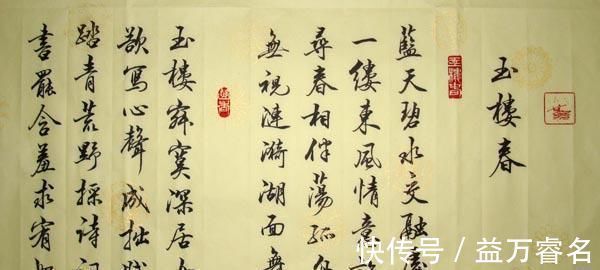 玉樓春
藍天碧水交融
一缕東風情意
尋春相伴蕩孤
無視漣漪湖面無
玉樓寂寞深居
欲寫心聲成拙
踏青荒野採詩
書罷含羞求宥
快传号 / 益万睿名